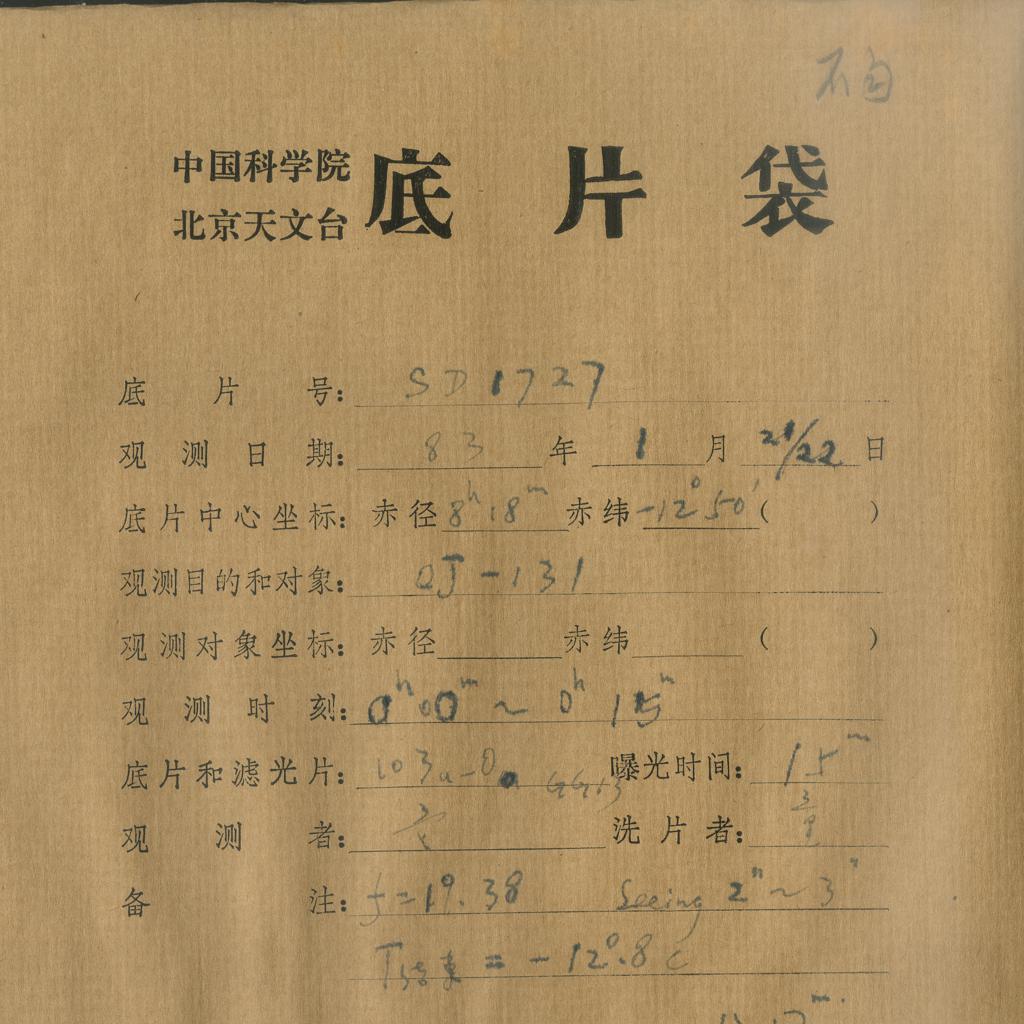 中国科学院
北京天文台
底片袋
底片号: SD1727
观测日期: 83年 1月 21/22日
底片中心坐标: 赤径 8ʰ18ᵐ 赤纬 -12°50′ ( )
观测目的和对象: OJ-131
观测对象坐标: 赤径 赤纬 ( )
观测时刻: 0ʰ00ᵐ ~ 0ʰ15ᵐ
底片和滤光片: 103a-O GG13 曝光时间: 15ᵐ
观测者: 洗片者:
备注: f=19.38 Seeing 2″~3″
T结束 = -12°.8 C